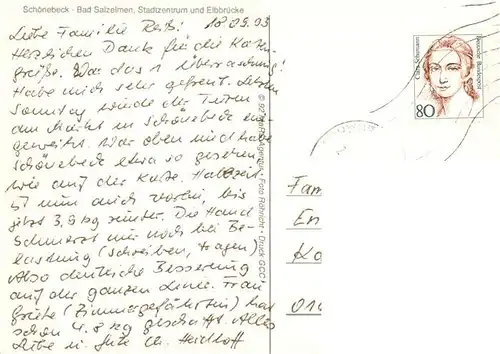 Schönebeck · Bad Salzelmen, Stadtzentrum und Elbbrücke
Liebe Familie 18.09.93
Herzlichen Dank für die Karten-
grüße. War das 1 Überraschung!
Habe mich sehr gefreut. Letzten
Sonntag wurde der
am Markt in Schönebeck ein-
geweiht. War oben und habe
Schönebeck etwa so gesehen
wie auf der Karte. Halbzeit
ist nun auch vorbei, bis
jetzt 3,9 kg runter. Die Hand
schmerzt nur noch bei Be-
lastung (schreiben, tragen)
Also deutliche Besserung
auf der ganzen Linie. Frau
(Zimmergefährtin) hat
schon 4,8 kg geschafft. Alles
Liebe u. Gute
Foto Röhricht · Druck GCC
Clara Schumann
Deutsche Bundespost
80
Fam
En
Ko
010